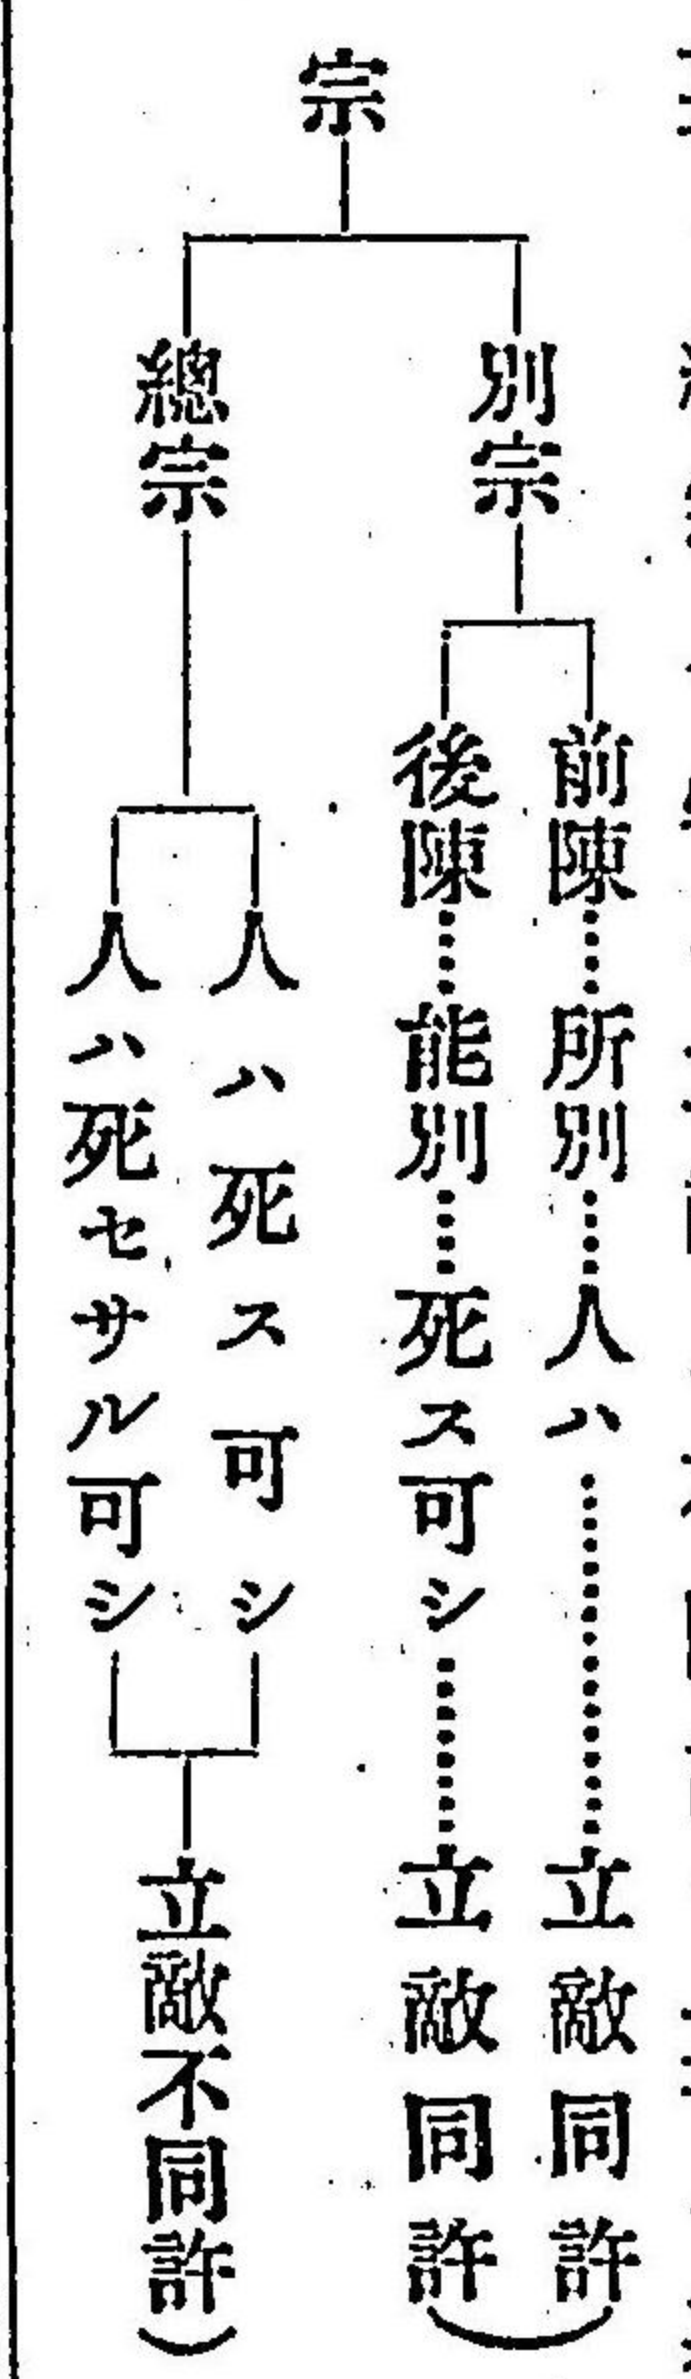 宗
別宗
前陳……所別……人ハ…………立敵同許
後陳……能別……死ス可シ……立敵同許
總宗
人ハ死ス可シ
人ハ死セサル可シ
立敵不同許